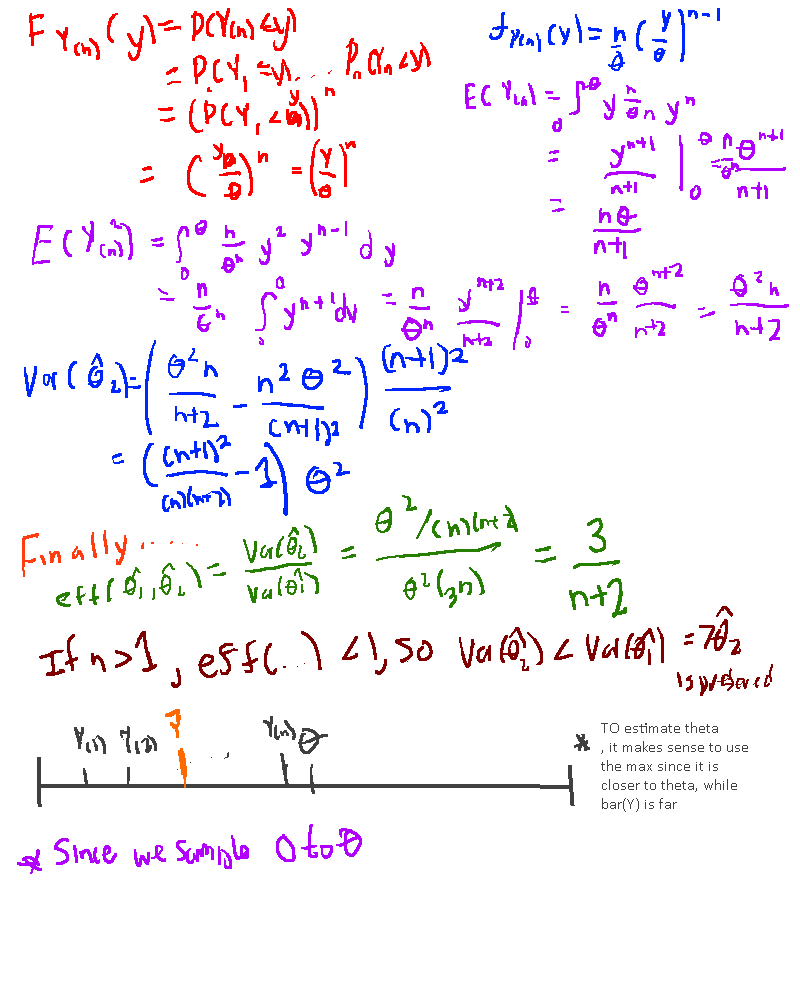 F_{Y_{(n)}}(y) = P(Y_{(n)} < y)
= P(Y_1 ≤ y) .... P_n(Y_n < y)
= (P(Y_1 < y))^n
= (y/θ)^n = (y/θ)^n
f_{Y(n)}(y) = n/θ (y/θ)^{n-1}
E(Y_{(n)}) = ∫_0^θ y n/θ^n y^n
= y^{n+1}/(n+1) |_0^θ = n/θ^n θ^{n+1}/(n+1)
= nθ/(n+1)
E(Y_{(n)}^2) = ∫_0^θ n/θ^n y^2 y^{n-1} dy
= n/θ^n ∫_0^θ y^{n+1} dy = n/θ^n y^{n+2}/(n+2) |_0^θ = n/θ^n θ^{n+2}/(n+2) = θ^2 n/(n+2)
Var(θ̂_2) = (θ^2 n/(n+2) - n^2 θ^2/(n+1)^2) (n+1)^2/(n)^2
= ((n+1)^2/(n)(n+2) - 1) θ^2
Finally .....
eff(θ̂_1, θ̂_2) = Va(θ̂_2)/Va(θ̂_1) = θ^2/(n)(n+2) / θ^2(3n) = 3/(n+2)
If n > 1, eff(...) < 1, so Va(θ̂_2) < Va(θ̂_1) => θ̂_2
is preferred
Y_(1) Y_(2) Ȳ ... Y_(n) θ
* TO estimate theta
, it makes sense to use
the max since it is
closer to theta, while
bar(Y) is far
* Since we sample 0 to θ